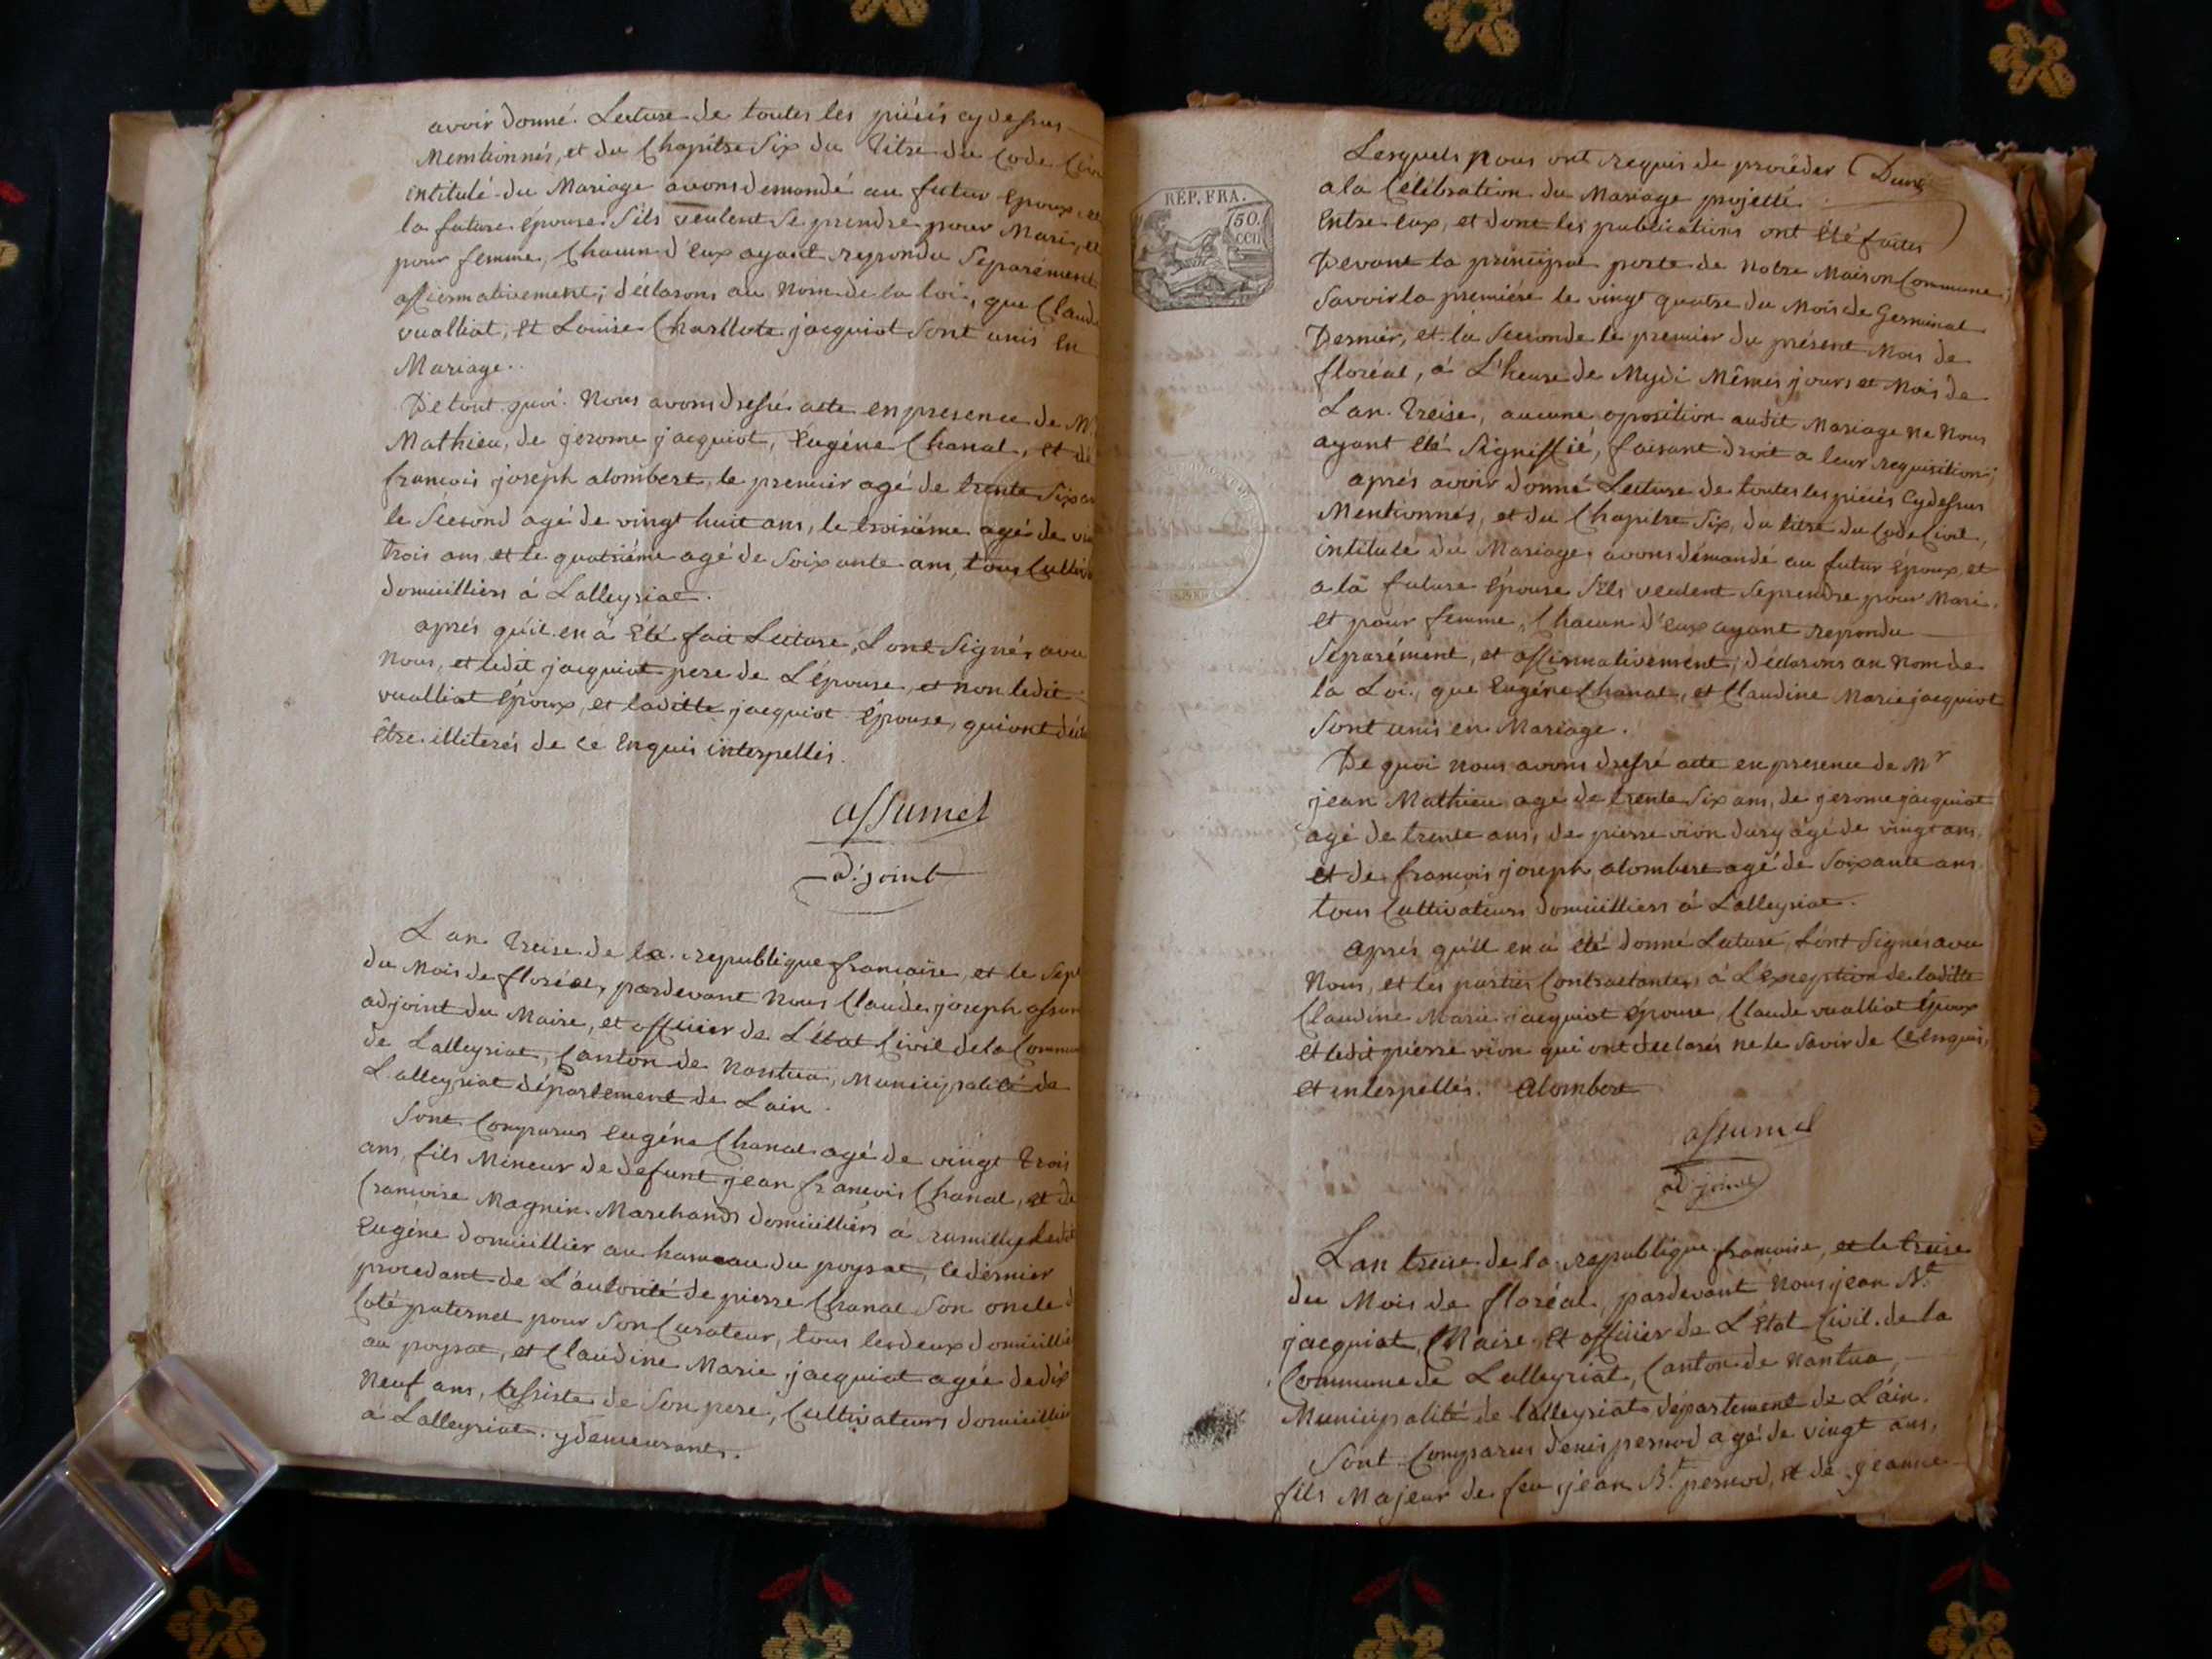 avoir donné. Lecture de toutes les piéces cydessus
Mentionnés, et du Chapitre Six du Titre du Code
intitulé du Mariage avons demandé au futur Epoux,
la future épouse. S'ils veulent se prendre pour Mari, et
pour femme, Chacun d'eux ayant repondu Séparément
affirmativement; déclarons au Nom de la loi, que Claude
vualliat, et Louise Charllote jacquiot sont unis en
Mariage..
De tout quoi. Nous avons dressé acte en presence de Mr
Mathieu, de jerome jacquiot, Eugéne Chanal, et de
francois joseph alombert, le premier agé de trente Six
le Second agé de vingt huit ans, le troisiéme agé de
trois ans, et le quatriéme agé de Soixante ans, tous
domicilliers á Lalleyriat.
aprés qu'il en á été fait Lecture, L'ont Signés avec
Nous, et ledit jacquiot pere de L'épouse, et non ledit
vualliat époux, et laditte jacquiot épouse, qui ont
être illiterés de ce Enquis interpellés.
assumel
adjoint
Lan Treise de la republique francaise, et le Sept
du Mois de floréal, pardevant Nous Claude joseph
adjoint du Maire, et officier de L'état Civil de la Commune
de Lalleyriat, Canton de Nantua, Municipalité de
Lalleyriat département de Lain.
Sont Comparus Eugéne Chanal agé de vingt Trois
ans, fils Mineur de defunt jean francois Chanal, et de
francoise Magnin. Marchands domicilliers á rumilly ledit
Eugéne domicillier au hameau du poysat, ce dernier
procedant de L'autorité de pierre Chanal Son oncle
Coté paternel pour Son Curateur, tous les deux
au poysat, et Claudine Marie jacquiot agée de dix
Neuf ans, assiste de Son pere, Cultivateurs
á Lalleyriat. y demeurants.
RÉP. FRA.
50.
Lesquels Nous ont requis de procéder
a la Célébration du Mariage projetté
Entre eux, et dont les publications ont été faites
Devant la principal porte de Notre Maison Commune;
Savoir la premiére le vingt quatre du Mois de Germinal
Dernier, et la Seconde le premier du présent Mois de
floréal, á L'heure de Mydi Mêmes jours et Mois de
Lan Treise, aucune oposition audit Mariage Ne Nous
ayant été Signiffié, faisant droit a leur requisition;
aprés avoir donné Lecture de toutes les piéces Cydessus
Mentionnés, et du Chapitre Six, du titre du Code Civil,
intitulé du Mariage, avons démandé au futur époux, et
a la future épouse S'ils veulent se prendre pour Mari.
et pour femme, Chacun d'eux ayant repondu
Séparément, et affirmativement; déclarons au Nom de
la Loi, que Eugéne Chanal, et Claudine Marie jacquiot
Sont unis en Mariage.
De quoi Nous avons dressé acte en presence de Mr
jean Mathieu agé de trente Six ans, de jerome jacquiot
agé de trente ans, de pierre vion dury âgé de vingt ans,
et de francois joseph alombert agé de Soixante ans.
tous Cultivateurs domicilliers á Lalleyriat.
aprés qu'il en á été donné Lecture, L'ont Signés avec
Nous, et les parties Contractantes á L'exception de laditte
Claudine Marie jacquiot épouse, Claude vualliat époux
et ledit pierre vion qui ont declarés ne le Savoir de Ce Enquis,
et interpellés. alombert
assumel
adjoint
Lan treise de la republique francoise, et le treise
du Mois de floréal, pardevant Nous jean Bt
jacquiot, Maire, et officier de L'état Civil de la
Commune de Lalleyriat, Canton de Nantua,
Municipalité de lalleyriat département de L'ain.
Sont Comparus denis pernod agé de vingt ans,
fils Majeur de feu jean Bt pernod, et de jeanne